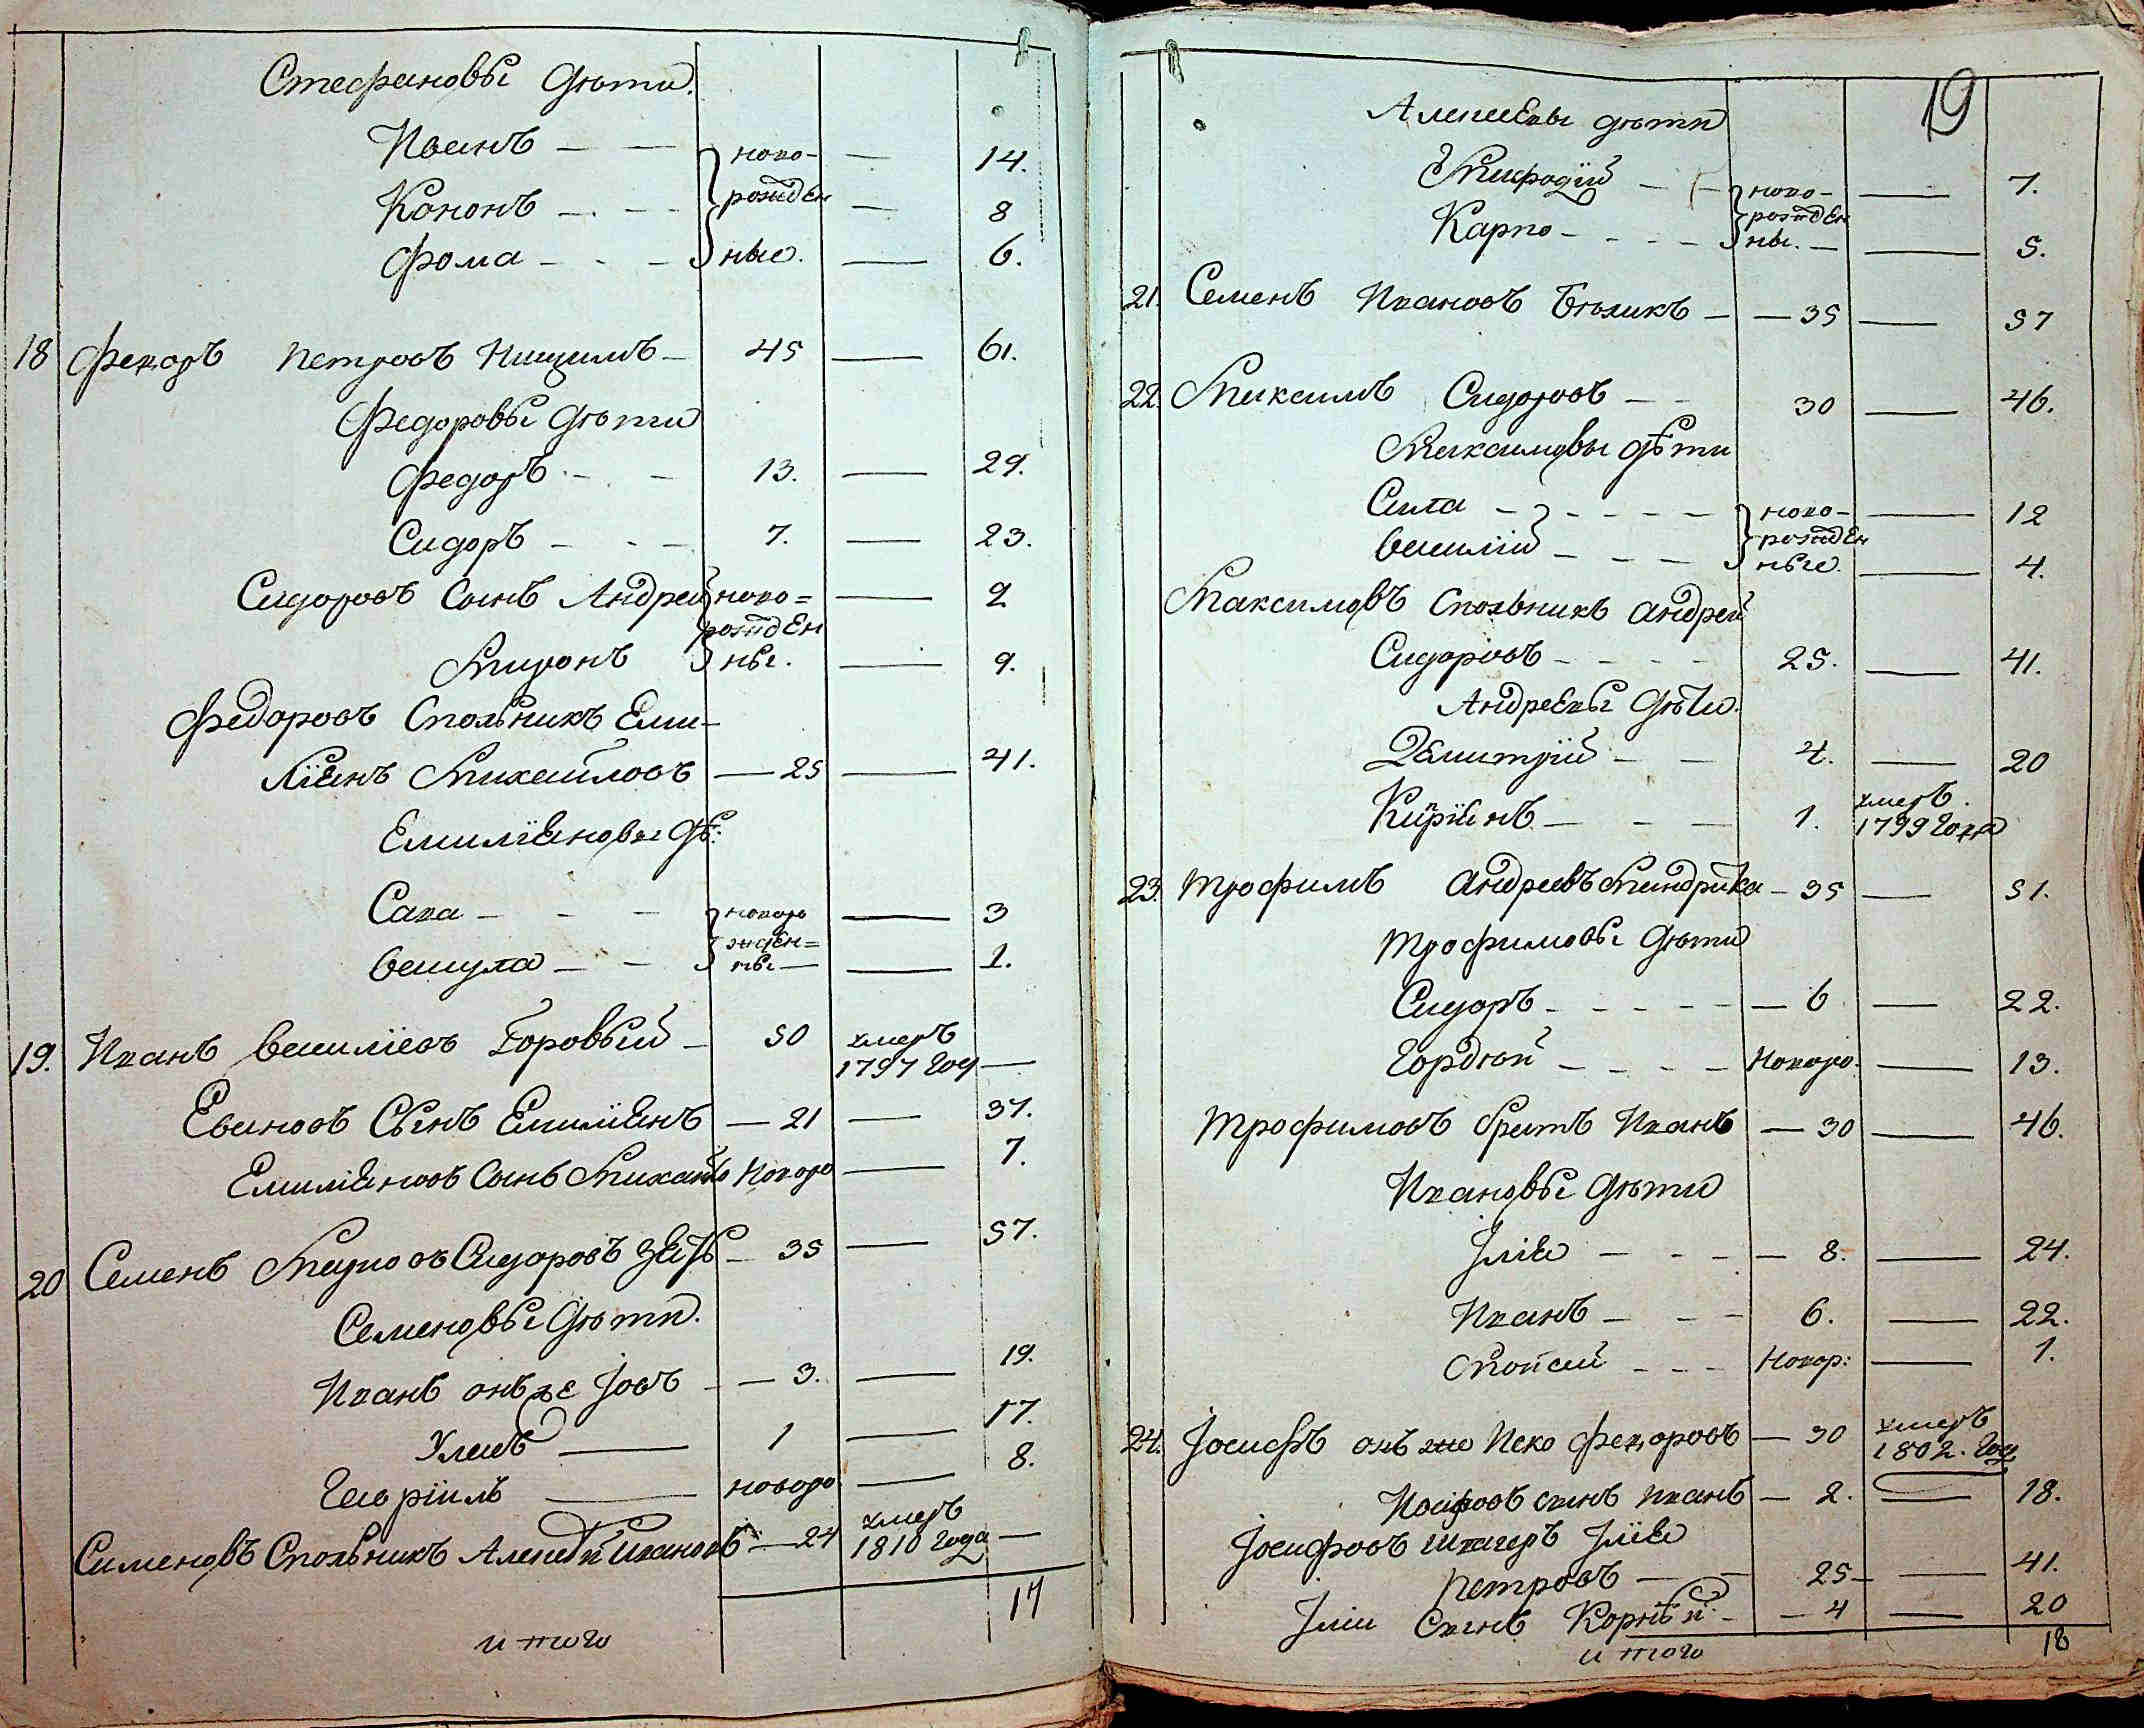 Стефановы дѣти.
Иванъ — — ново- — 14.
Кононъ — — рожден — 8
Фома — — ные. — 6.
18 Федоръ Петровъ — 45 — 61.
Федоровы дѣти
Федоръ — — 13. — 29.
Сидоръ — — 7. — 23.
Сидоровъ сынъ Андрей ново= — 2
рожден
Миронъ ны. — 9.
Федоровъ Спольникъ Еми-
лiанъ Михайловъ — 25 — 41.
Емилiановы дѣ:
Сава — — новоро — 3
жден=
— — ны — — 1.
19. Иванъ Василiевъ Боровый — 50 умеръ
1797 год —
Евановъ Сынъ Емилiанъ — 21 — 37.
Емилiановъ Сынъ Михайло Новоро — 7.
20 Семенъ Сидоровъ зять — 35 — 57.
Семеновы дѣти.
Иванъ онъ же Iовъ — 3. — 19.
— 1 — 17.
Гаврiилъ — новоро — 8.
Сименовъ Спольникъ Алексѣй Ивановъ — 24 умеръ
1810 года —
17
итого
19
Алексѣевы дѣти
Мефодiй — — ново- — 7.
рожден
Карпо — — — ны. — — 5.
21. Семенъ Ивановъ Бѣликъ — — 35 — 57
22. Максимъ Сидоровъ — — 30 — 46.
Максимовы дѣти
Сила — — — — ново- — 12
рожден
Василiй — — — ные. — 4.
Максимовъ Спольникъ Андрей
Сидоровъ — — — 25. — 41.
Андреевы дѣти.
Демитрiй — — 4. — 20
Кирiянъ — — — 1. умеръ.
1799 года
23. Трофимъ Андреевъ Мандрика — 35 — 51.
Трофимовы дѣти
Сидоръ — — — — — 6 — 22.
Гордѣй — — — — Новоро. — 13.
Трофимовъ братъ Иванъ — 30 — 46.
Ивановы дѣти
Iлiя — — — — 8. — 24.
Иванъ — — — 6. — 22.
Мойсей — — — Новор: — 1.
24. Iосифъ онъ же Иско Федоровъ — 30 умеръ
1802. год
Иосифовъ сынъ Иванъ — 2. — 18.
Iосифовъ швагеръ Iлiя
Петровъ — — 25 — — 41.
Iлiи Сынъ Корнѣй. — — 4 — 20
18
итого